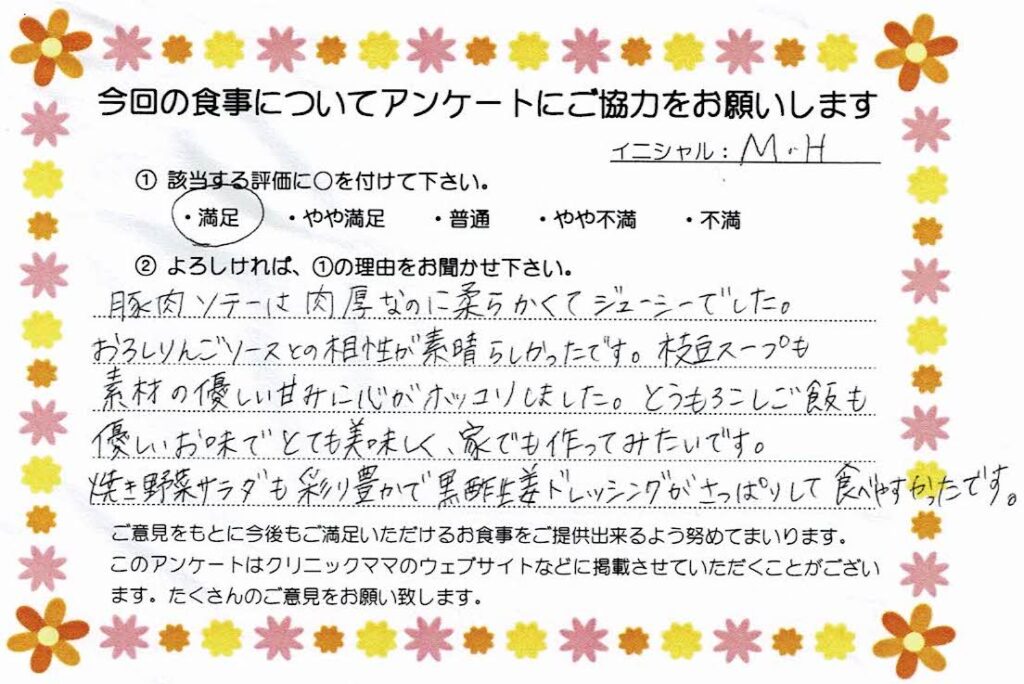 今回の食事についてアンケートにご協力をお願いします
イニシャル：M.H
① 該当する評価に○を付けて下さい。
・満足 ・やや満足 ・普通 ・やや不満 ・不満
② よろしければ、①の理由をお聞かせ下さい。
豚肉ソテーは肉厚なのに柔らかくてジューシーでした。
おろしりんごソースとの相性が素晴らしかったです。枝豆スープも
素材の優しい甘みに心がホッコリしました。とうもろこしご飯も
優しいお味でとても美味しく、家でも作ってみたいです。
焼き野菜サラダも彩り豊かで黒酢生姜ドレッシングがさっぱりして食べやすかったです。
ご意見をもとに今後もご満足いただけるお食事をご提供出来るよう努めてまいります。
このアンケートはクリニックママのウェブサイトなどに掲載させていただくことがござい
ます。たくさんのご意見をお願い致します。